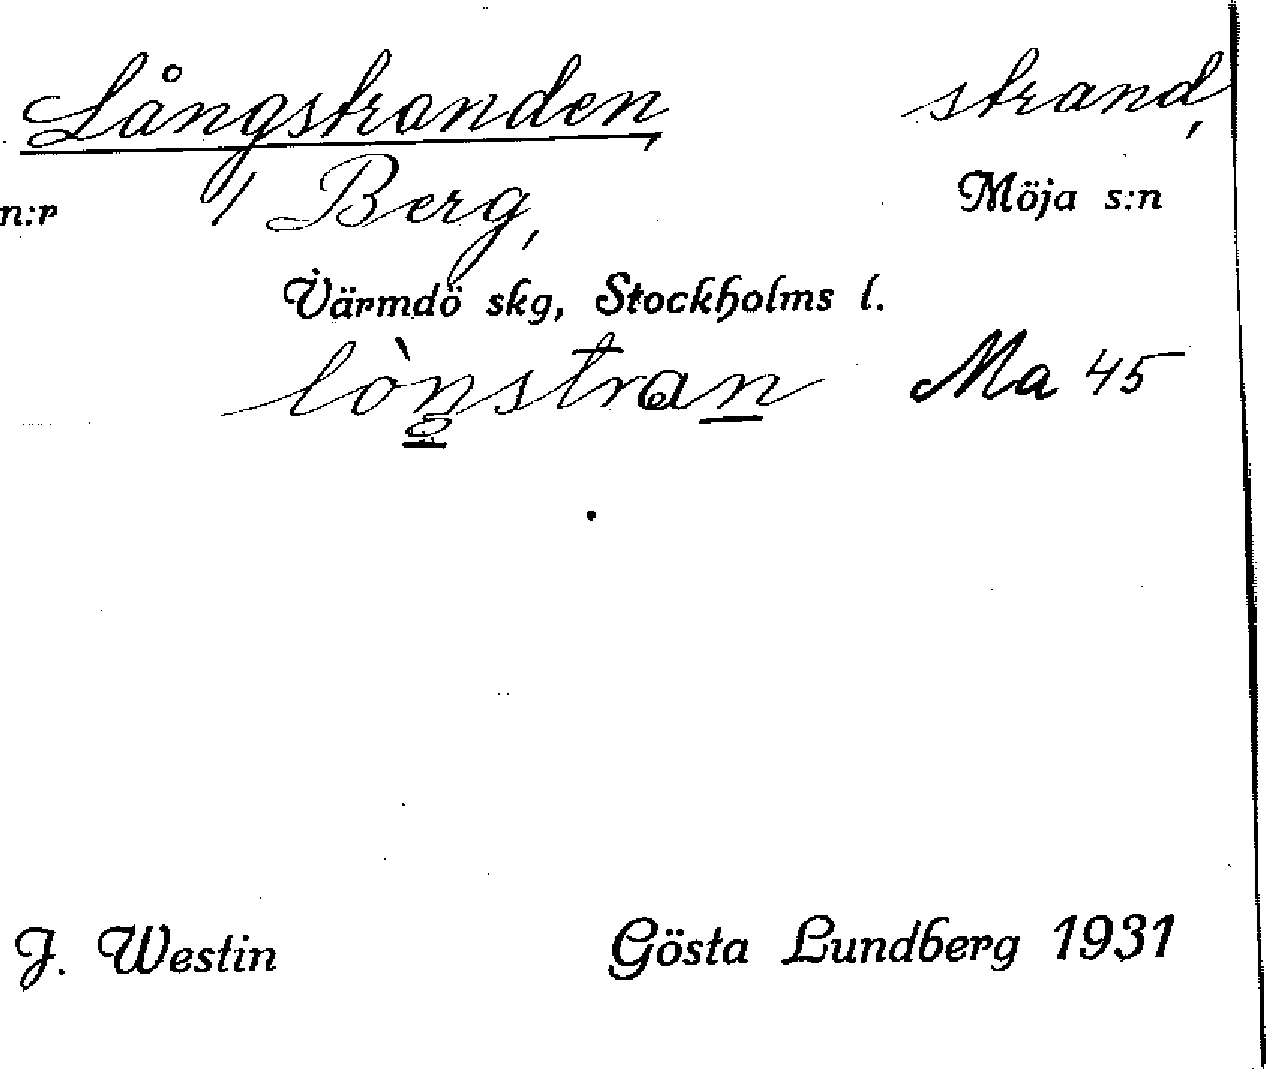 Långstranden, strand,
n:r 1 Berg, Möja s:n
Värmdö skg, Stockholms l.
lòŋstran Ma 45
J. Westin Gösta Lundberg 1931